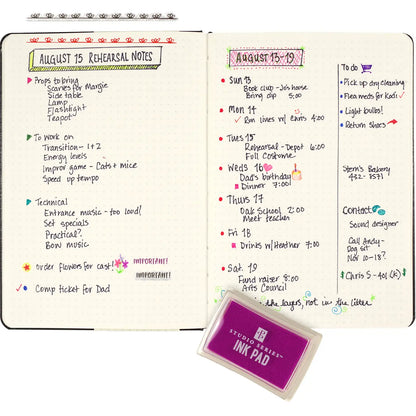 AUGUST 15 REHEARSAL NOTES
Props to bring
Scarves for Margie
Side table
Lamp
Flashlight
Teapot
To Work on
Transition - 1+2
Energy levels
Improv game - Cats + mice
Speed up tempo
Technical
Entrance music - too loud!
Set specials
Practical?
Bow music
order flowers for cast!
IMPORTANT!
IMPORTANT!
Comp ticket for Dad
AUGUST 13-19
Sun 13
Book club - Jo's house
Bring dip 5:00
Mon 14
Run lines w/ Chris 4:00
Tues 15
Rehearsal - Depot 6:00
Full Costume
Weds 16
Dad's birthday
Dinner 7:00
Thurs 17
Oak School 2:00
Meet teacher
Fri 18
Drinks w/ Heather 7:00
Sat. 19
Fund raiser 8:00
Arts Council
in the layers, not in the litter
To do
Pick up dry cleaning
Flea meds for Kali
Light bulbs!
Return Shoes
Stern's Bakery
432-8571
Contact
Sound designer
Call Andy-
Dog sit
Nov 10-18?
Chris S - 401
STUDIO SERIES
INK PAD